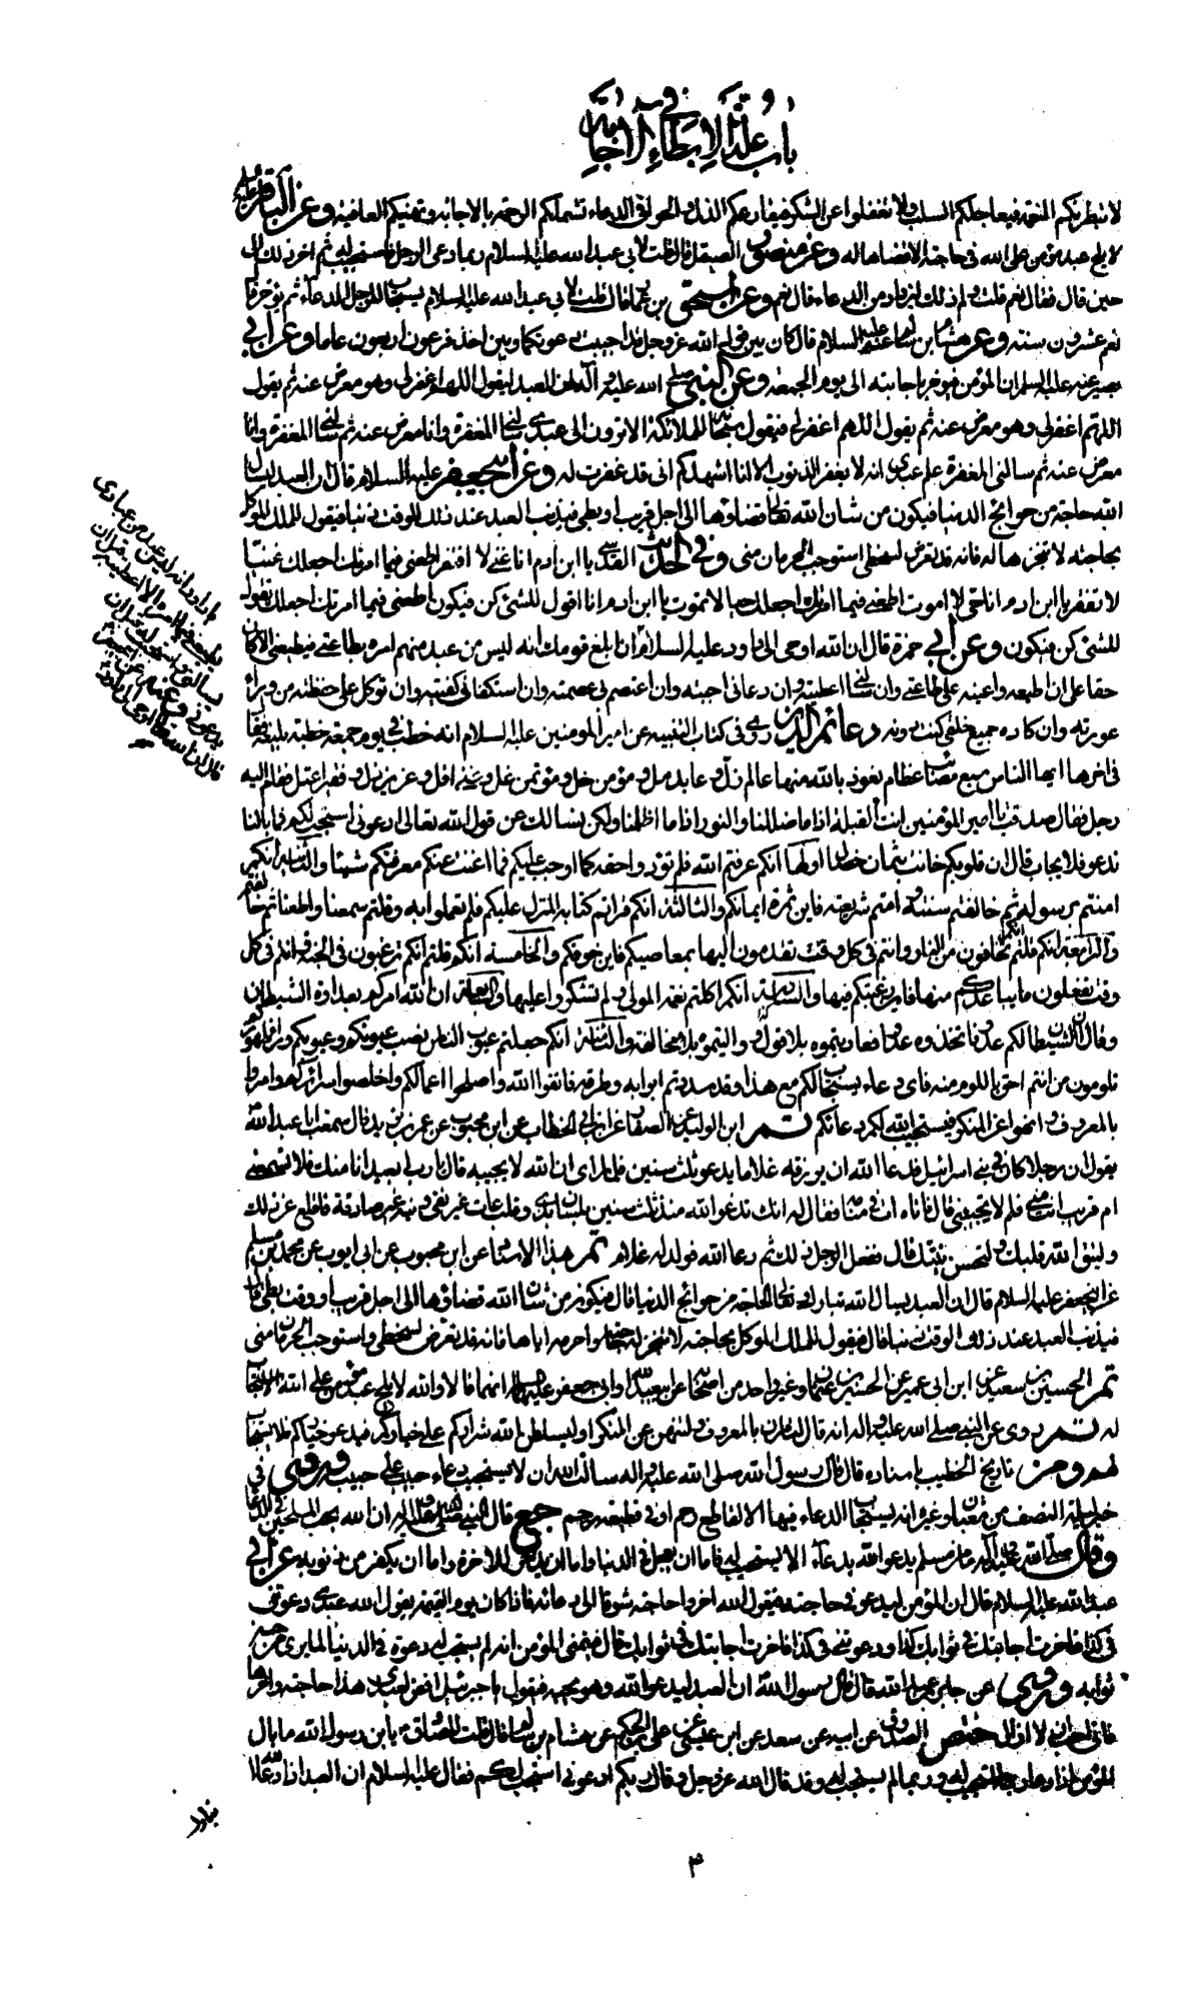 باب علة الإبطاء في الإجابة
لا تبطرنكم النعمة فيعاجلكم السلب ولا تغفلوا عن الشكر فيفارقكم الذل في الدعاء تشملكم الرحمة بالاجابة وتهنيكم العافية وعن الباقر عليه
لا يلح عبد مؤمن على الله في حاجته الا قضاها له وعن منصور الصيقل قال قلت لابي عبد الله عليه السلام ربما دعى الرجل فاستجيب له ثم اخر ذلك الى
حين قال فقال نعم قلت ولم ذلك ليزداد من الدعاء قال نعم وعن اسحق بن عمار قال قلت لابي عبد الله عليه السلام يستجاب للرجل الدعاء ثم يؤخر قال
نعم عشرون سنة وعن هشام ابن سالم عنه عليه السلام قال كان بين قول الله عز وجل قد اجيبت دعوتكما وبين اخذ فرعون اربعون عاما وعن ابي
بصير عنه عليه السلام ان المؤمن ليدعو فيؤخر باجابته الى يوم الجمعة وعن النبي صلى الله عليه وآله ان العبد ليقول اللهم اغفر لي وهو معرض عنه ثم يقول
اللهم اغفر لي وهو معرض عنه ثم يقول اللهم اغفر لي فيقول سبحانه للملائكة الا ترون الى عبدي سالني المغفرة وانا معرض عنه ثم سالني المغفرة وانا
معرض عنه ثم سالني المغفرة علم عبدي انه لا يغفر الذنوب الا انا اشهدكم اني قد غفرت له وعن ابي جعفر عليه السلام قال ان العبد ليسال
الله حاجته من حوائج الدنيا فيكون من شان الله تعالى قضاؤها الى اجل قريب او بطيء فيذنب العبد عند ذلك الوقت ذنبا فيقول للملك الموكل
بحاجته لا تنجزها له فانه قد تعرض لسخطي استوجب الحرمان مني وفي الحديث القدسي يا ابن ادم انا غني لا افتقر اطعني فيما امرتك اجعلك غنيا
لا تفتقر يا ابن ادم انا حي لا اموت اطعني فيما امرتك اجعلك حيا لا تموت يا ابن ادم انا اقول للشيء كن فيكون اطعني فيما امرتك اجعلك تقول
للشيء كن فيكون وعن ابي حمزة قال ان الله اوحى الى داود عليه السلام ان ابلغ قومك انه ليس من عبد منهم امره بطاعتي فيطيعني الا كان
حقا علي ان اطيعه واعينه على طاعتي وان سالني اعطيته وان دعاني اجبته وان اعتصم بي عصمته وان استكفاني كفيته وان توكل علي حفظته من وراء
عورته وان كاده جميع خلقي كنت دونه دعائم الدين روى في كتاب التنبيه عن امير المؤمنين عليه السلام انه خطب في يوم جمعة خطبة بليغة فقال
في اخرها ايها الناس سبع مصائب عظام نعوذ بالله منها عالم زل وعابد مل ومؤمن خل ومؤتمن غل وغني اقل وعزيز ذل وفقير اعتل فقام اليه
رجل فقال صدقت يا امير المؤمنين انت القبلة اذا ما ضللنا والنور اذا ما اظلمنا ولكن نسالك عن قول الله تعالى ادعوني استجب لكم فما بالنا
ندعو فلا يجاب قال ان قلوبكم خانت بثمان خصال اولها انكم عرفتم الله فلم تؤدوا حقه كما اوجب عليكم فما اغنت عنكم معرفتكم شيئا والثانية انكم
امنتم برسوله ثم خالفتم سنته وامتم شريعته فاين ثمرة ايمانكم والثالثة انكم قراتم كتابه المنزل عليكم فلم تعملوا به وقلتم سمعنا واطعنا ثم خالفتم
والرابعة انكم قلتم انكم تخافون من النار وانتم في كل وقت تقدمون اليها بمعاصيكم فاين خوفكم والخامسة انكم قلتم انكم ترغبون في الجنة وانتم في كل
وقت تفعلون ما يباعدكم منها فاين رغبتكم فيها والسادسة انكم اكلتم نعمة المولى ولم تشكروا عليها والسابعة ان الله امركم بعداوة الشيطان
وقال ان الشيطان لكم عدو فاتخذوه عدوا فعاديتموه بلا قول وواليتموه بلا مخالفة والثامنة انكم جعلتم عيوب الناس نصب عيونكم وعيوبكم وراء ظهوركم
تلومون من انتم احق باللوم منه فاي دعاء يستجاب لكم مع هذا وقد سددتم ابوابه وطرقه فاتقوا الله واصلحوا اعمالكم واخلصوا سرائركم وامروا
بالمعروف وانهوا عن المنكر فيستجيب الله لكم دعائكم ابن الوليد عن الصفار عن ابن ابي الخطاب عن ابن محبوب عن عمر بن يزيد قال سمعت ابا عبد الله
يقول ان رجلا كان في بني اسرائيل قد دعا الله ان يرزقه غلاما يدعو ثلث سنين فلما راى ان الله لا يجيبه قال يا رب ابعيد انا منك فلا تسمعني
ام قريب انت مني فلم لا تجيبني قال فاتاه ات في منامه فقال له انك تدعو الله منذ ثلث سنين بلسان بذي وقلب عات غير نقي ونية غير صادقة فاقلع عن ذلك
وليتق الله قلبك ولتحسن نيتك قال ففعل الرجل ذلك ثم دعا الله فولد له غلام بهذا الاسناد عن ابن محبوب عن ابي ايوب عن محمد بن مسلم
عن ابي جعفر عليه السلام قال ان العبد يسال الله تبارك وتعالى الحاجة من حوائج الدنيا قال فيكون من شان الله قضاؤها الى اجل قريب او وقت بطيء قال
فيذنب العبد عند ذلك الوقت ذنبا قال فيقول للملك الموكل بحاجته لا تنجز له حاجته واحرمه اياها فانه قد تعرض لسخطي واستوجب الحرمان مني
الحسين بن سعيد عن ابن ابي عمير عن الحسين بن عثمان وغير واحد من اصحابنا عن ابي عبد الله او ابي جعفر عليهما السلام انهما قالا والله لا يلح عبد مؤمن على الله الا استجاب
له روى عن النبي صلى الله عليه واله انه قال لتامرن بالمعروف ولتنهن عن المنكر او ليسلطن الله شراركم على خياركم فيدعو خياركم فلا يستجاب
لهم ومن تاريخ الخطيب باسناده قال قال رسول الله صلى الله عليه واله سالت الله ان لا يستجيب دعاء حبيب على حبيبه وروي في
خبر ليلة النصف من شعبان وغيره انه يستجاب الدعاء فيها الا لقاطع رحم او في قطيعة رحم جمع قال النبي صلى الله عليه واله ان الله يحب الملحين في الدعاء
وقال صلى الله عليه وآله ما من مسلم يدعو الله بدعاء الا يستجيب له فاما ان يعجل في الدنيا واما ان يدخر للاخرة واما ان يكفر من ذنوبه عن ابي
عبد الله عليه السلام قال ان المؤمن ليدعو في حاجته فيقول الله اخروا حاجته شوقا الى دعائه فاذا كان يوم القيمة يقول الله عبدي دعوتني
في كذا فاخرت اجابتك في ثوابك كذا ودعوتني في كذا فاخرت اجابتك في ثوابك قال فيتمنى المؤمن انه لم يستجب له دعوة في الدنيا لما يرى من حسن
ثوابه وروي عن جابر بن عبد الله قال قال رسول الله ان العبد ليدعو الله وهو يحبه فيقول يا جبرئيل اقض لعبدي هذا حاجته واخرها
فاني احب ان لا ازال ختص الصدوق عن ابيه عن سعد عن ابن عيسى عن علي بن الحكم عن هشام بن سالم قال قلت للصادق يا بن رسول الله ما بال
المؤمن اذا دعا ربما استجيب له وربما لم يستجب له وقد قال الله عز وجل وقال ربكم ادعوني استجب لكم فقال عليه السلام ان العبد اذا دعا الله
بنية
يدعوني
٣